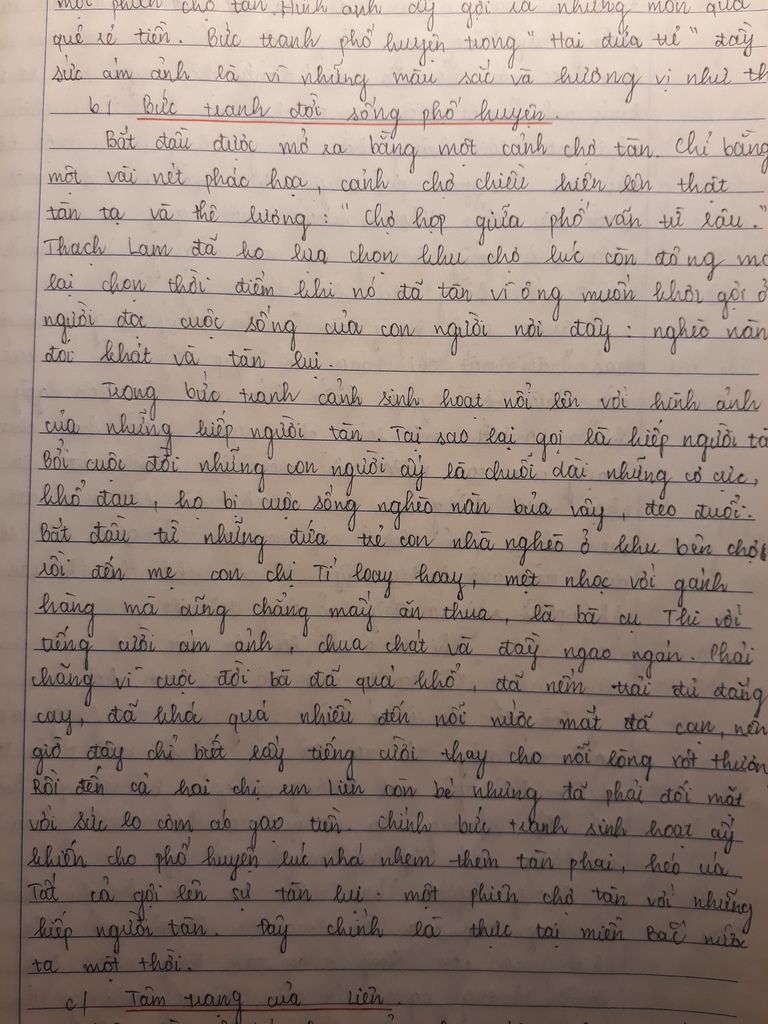 một phiên chợ tàn. Hình ảnh ấy gợi ra những món quà
quê rẻ tiền. Bức tranh phố huyện trong "Hai đứa trẻ" đầy
sức ám ảnh là vì những màu sắc và hương vị như th
b/ Bức tranh đời sống phố huyện.
Bắt đầu được mở ra bằng một cảnh chợ tàn. Chỉ bằng
một vài nét phác họa, cảnh chợ chiều hiện lên thật
tàn tạ và thê lương: "Chợ họp giữa phố vãn từ lâu."
Thạch Lam đã ko lựa chọn khu chợ lúc còn đông mà
lại chọn thời điểm khi nó đã tàn vì ông muốn khơi gợi ở
người đọc cuộc sống của con người nơi đây: nghèo nàn
đói khát và tàn lụi.
Trong bức tranh cảnh sinh hoạt nổi lên với hình ảnh
của những kiếp người tàn. Tại sao lại gọi là kiếp người tà
Bởi cuộc đời những con người ấy là chuỗi dài những cơ cực,
khổ đau, họ bị cuộc sống nghèo nàn bủa vây, đeo đuổi.
Bắt đầu từ những đứa trẻ con nhà nghèo ở khu bên chợ
rồi đến mẹ con chị Tí loay hoay, mệt nhọc với gánh
hàng mà cũng chẳng mấy ăn thua, là bà cụ Thi với
tiếng cười ám ảnh, chua chát và đầy ngao ngán. Phải
chăng vì cuộc đời bà đã quá khổ, đã nếm trải đủ đắng
cay, đã khóc quá nhiều đến nỗi nước mắt đã cạn, nên
giờ đây chỉ biết lấy tiếng cười thay cho nỗi lòng xót thươn
Rồi đến cả hai chị em Liên còn bé nhưng đã phải đối mặt
với sức lo cơm áo gạo tiền. Chính bức tranh sinh hoạt ấy
khiến cho phố huyện lúc nhá nhem thêm tàn phai, héo úa
Tất cả gợi lên sự tàn lụi: một phiên chợ tàn với những
kiếp người tàn. Đây chính là thực tại miền Bắc nước
ta một thời.
c/ Tâm trạng của Liên.